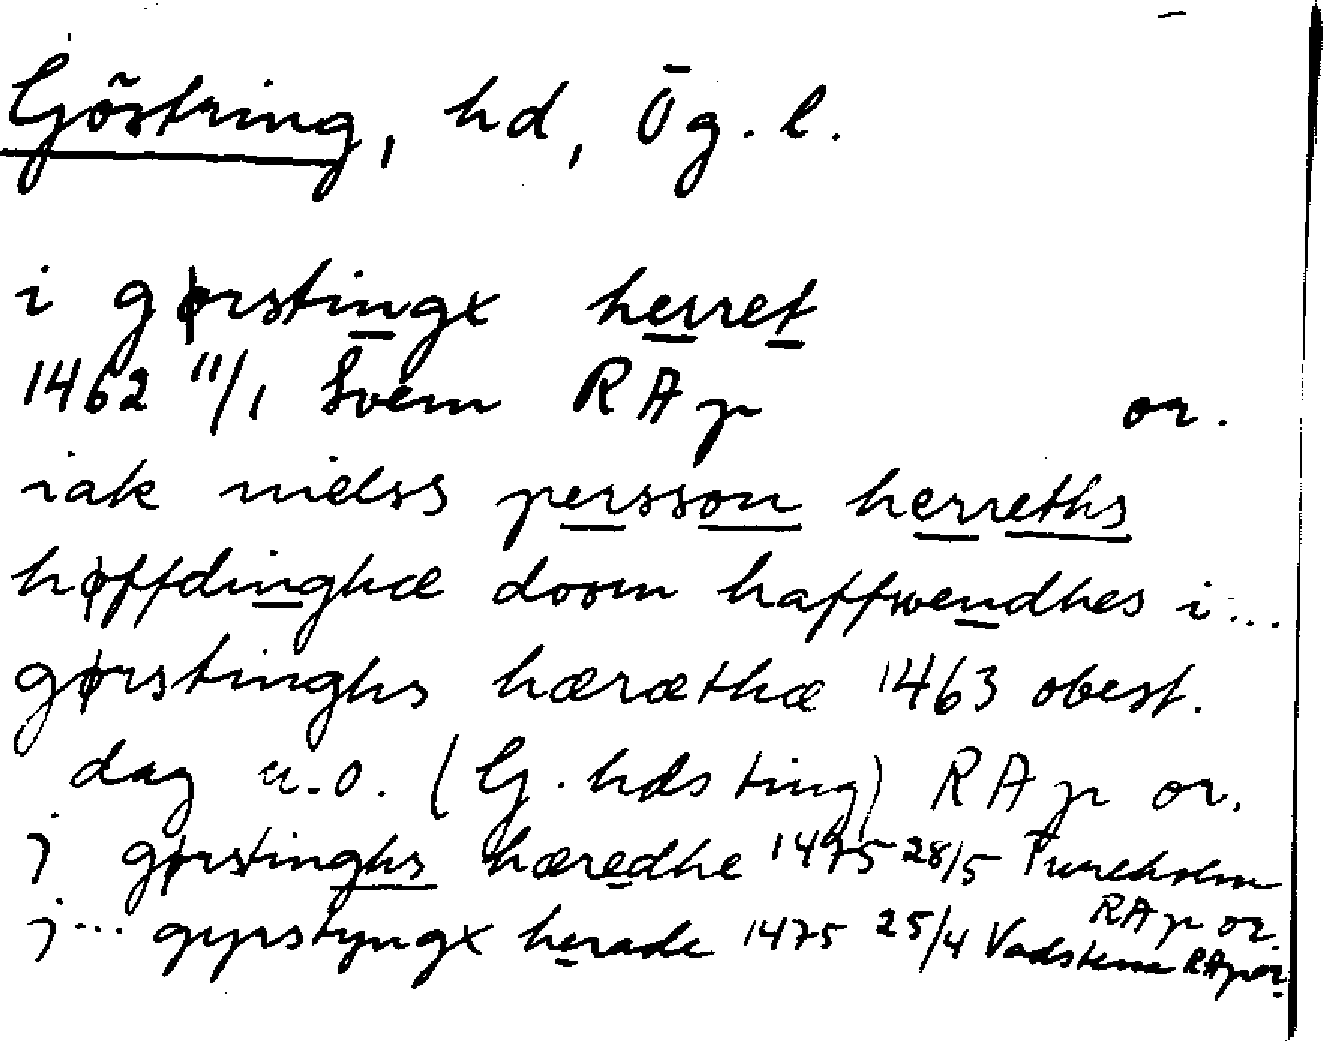 Göstring, hd, Ög. l.
i gørstingx herret
1462 11/1 Svem RA p or.
iak nielss persson herreths
høffdinghæ doom haffwendhes i...
gørstinghs hæræthæ 1463 obest.
dag u.o. (G. hds ting) RA p or.
j gørstinghs hæredhe 1475 28/5 Pureholm
RA p or.
j... gyrstyngx herade 1475 25/4 Vadstena RA p or.